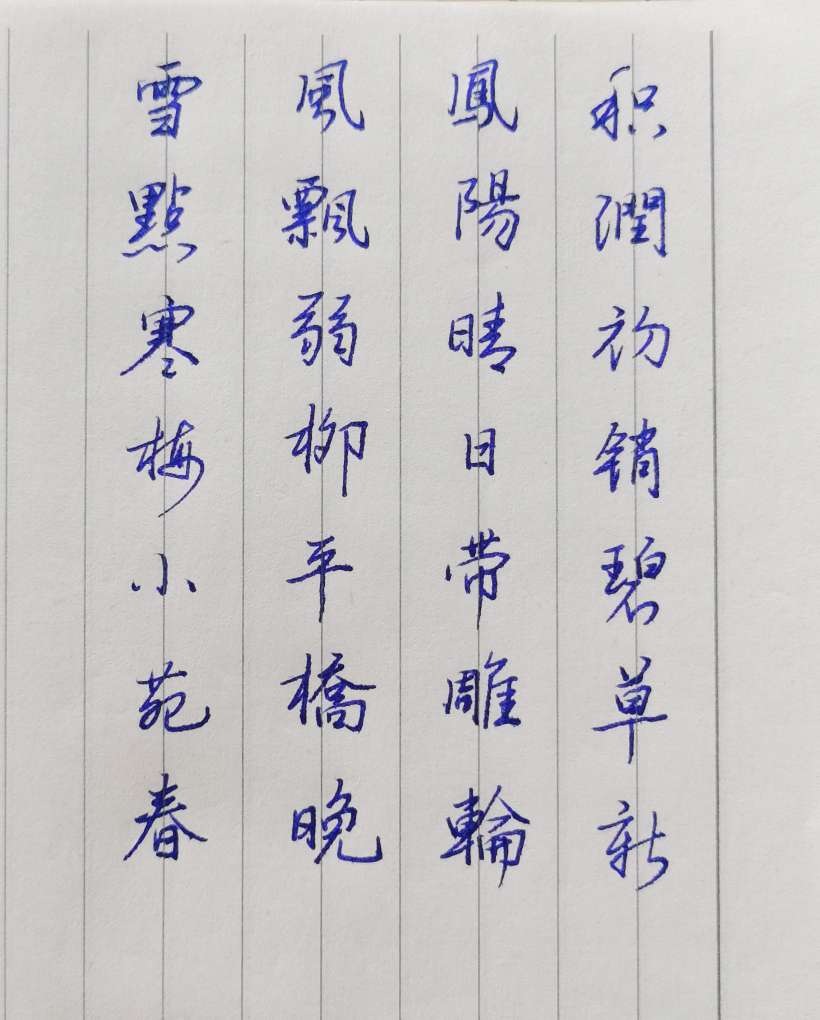 积潤初销碧草新
鳳陽晴日带雕輪
風飄弱柳平橋晚
雪點寒梅小苑春